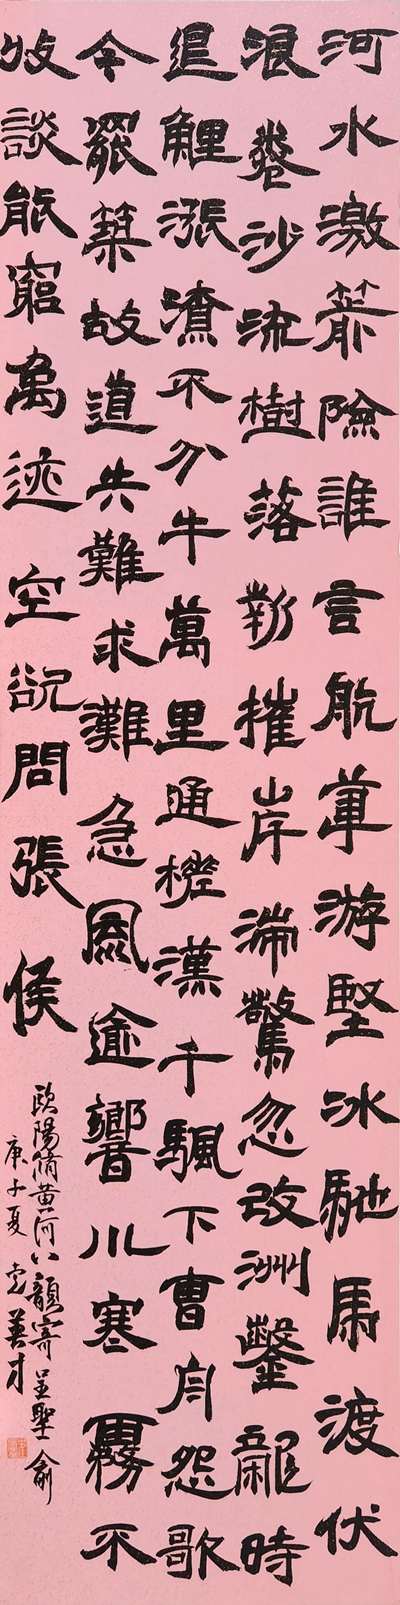 河水激箭險誰言航葦游堅冰馳馬渡伏
浪卷沙流樹落新摧岸湍驚忽改洲鑿龍時
追鯉漲潦不分牛萬里通槎漢千颿下曹舟怨歌
今罷築故道失難求灘急風逾響川寒霧不
收談能窮禹迹空欲問張侯
歐陽脩黃河八韻寄呈聖俞
庚子夏